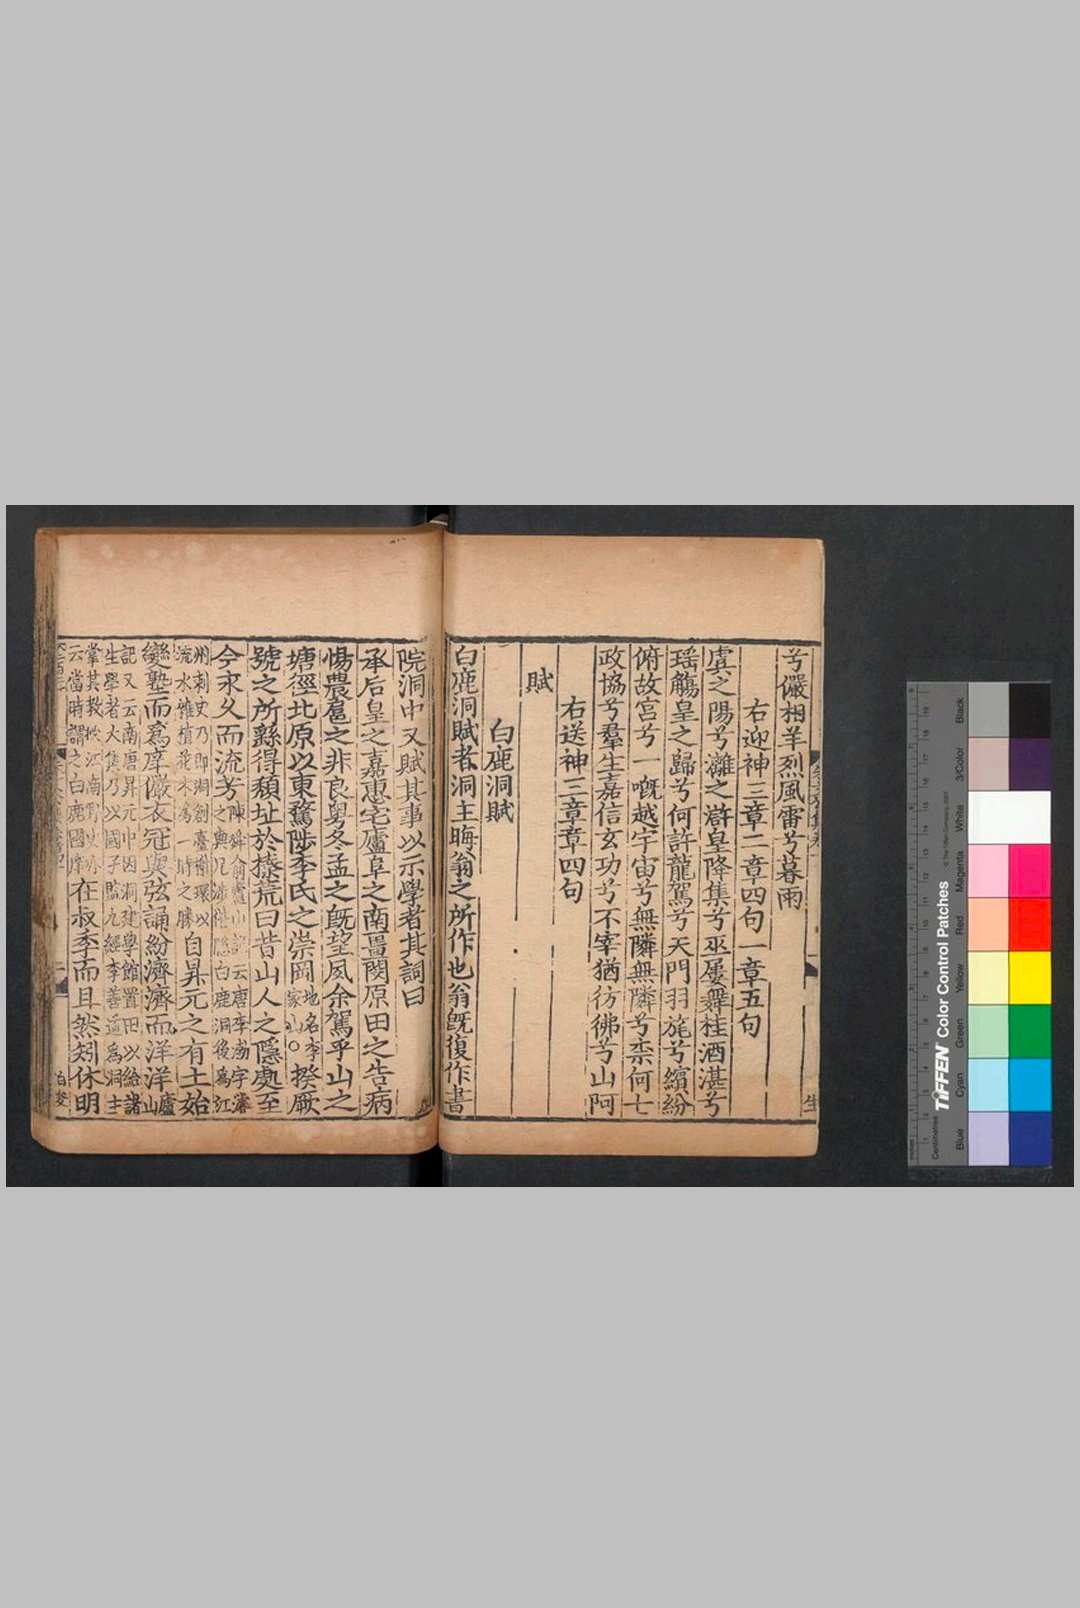 兮儼相羊烈風雷兮暮雨
右迎神三章二章四句一章五句
虞之陽兮灕之滸皇降集兮巫屢舞桂酒湛兮
瑶觴皇之歸兮何許龍駕兮天門羽旄兮繽紛
俯故宫兮一慨越宇宙兮無隣無隣兮柰何七
政協兮羣生嘉信玄功兮不宰猶彷彿兮山阿
右送神三章章四句
賦
白鹿洞賦
白鹿洞賦者洞主晦翁之所作也翁既復作書
院洞中又賦其事以示學者其詞曰
承后皇之嘉惠宅廬阜之南畺閔原田之告病
惕農扈之非良粤冬孟之既望夙余駕乎山之
塘徑北原以東騖陟李氏之崇岡地名李家山○揆厥
號之所繇得頽址於榛荒曰昔山人之隱處至
今永久而流芳陳舜俞廬山記云唐李渤字濬之與兄涉偕隱白鹿洞後爲江
州刺史乃即洞創臺榭環以流水雜植花木爲一時之勝自昇元之有土始
變塾而爲庠儼衣冠與弦誦紛濟濟而洋洋廬山
記又云南唐昇元中因洞建學館置田以給諸生學者大集乃以國子監九經李善道爲洞主
掌其教
云當時謂之白鹿國庠在叔季而且然矧休明
TIFFEN Color Control Patches
© The Tiffen Company, 2007
Centimetres
Blue
Cyan
Green
Yellow
Red
Magenta
White
3/Color
Black